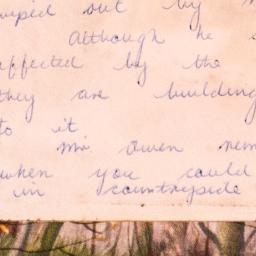 wiped out by
Although he
affected by the
they are building
to it
Mr Owen
when you could
in countryside